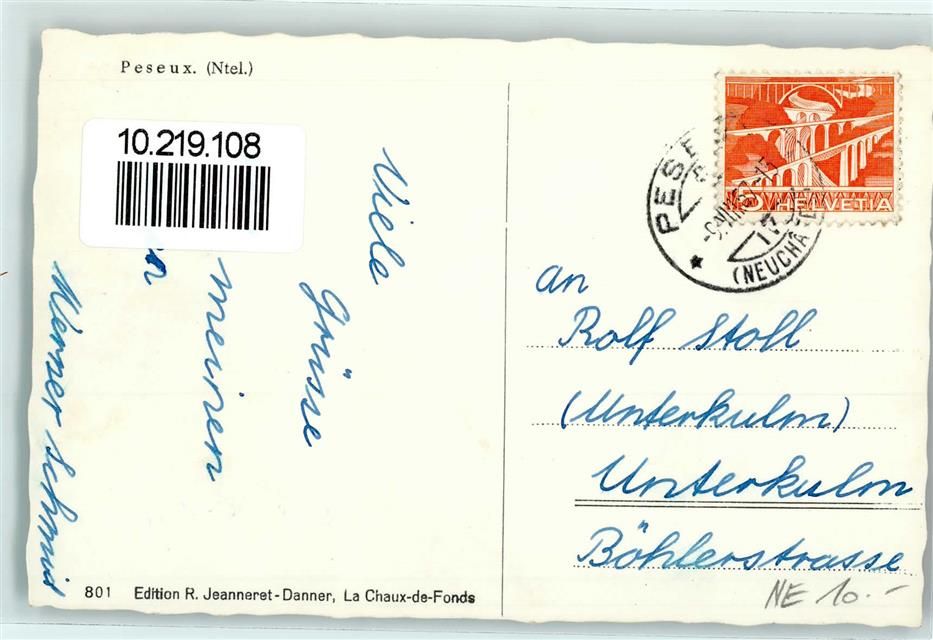 Peseux. (Ntel.)
10.219.108
Viele
Grüsse
meinen
Werner Schmid
801 Edition R. Jeanneret-Danner, La Chaux-de-Fonds
5 HELVETIA
PESEUX
(NEUCHÂTEL)
an
Rolf Stoll
(Unterkulm)
Unterkulm
Böhlerstrasse
NE 10.-